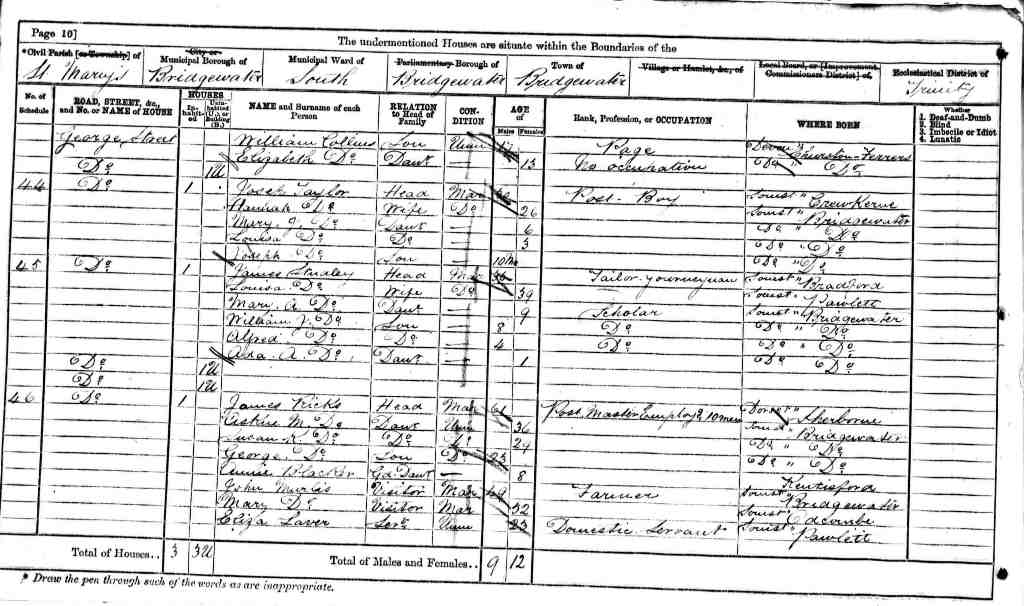 Page 10]
The undermentioned Houses are situate within the Boundaries of the
*Civil Parish [or Township] of City or Municipal Borough of Municipal Ward of Parliamentary Borough of Town of Village or Hamlet, &c., of Local Board, or [Improvement Commissioners District] of Ecclesiastical District of
St Mary's Bridgewater South Bridgewater Bridgewater Trinity
No. of Schedule ROAD, STREET, &c., and No. or NAME of HOUSE HOUSES Inhabited Uninhabited (U.), or Building (B.) NAME and Surname of each Person RELATION to Head of Family CONDITION AGE of Males Females Rank, Profession, or OCCUPATION WHERE BORN Whether 1. Deaf-and-Dumb 2. Blind 3. Imbecile or Idiot 4. Lunatic
George Street William Collins Son Unm 17 Page Devon Churston Ferrers
Do 1U Elizabeth Do Daur 13 No occupation Do Do
44 Do 1 Joseph Taylor Head Mar Post Boy Somst " Crewkerne
Hannah Do Wife Do 26 Somst " Bridgewater
Mary J. Do Daur — 6 Do " Do
Louisa Do Do — 3 Do " Do
Joseph Do Son — 10 Mo Do " Do
45 Do 1 James Head Mar 36 Tailor journeyman Somst " Bradford
Louisa Do Wife Do 39 Somst " Pawlett
Mary A. Do Daur — 9 Scholar Somst " Bridgewater
William J. Do Son — 8 Do Do " Do
Alfred Do Do — 4 Do Do " Do
Ada A. Do Daur — 1 Do Do
Do 1U
Do 1U
46 Do 1 James Ricks Head Mar 61 Post Master Employg 10 men Dorset " Sherborne
M. Do Daur Unm 36 Somst " Bridgewater
Susan K. Do Do Do 29 Do " Do
George Do Son Do 23 Do " Do
Annie Blacker Gd Daur — 8
John Visitor Mar 49 Farmer Somst "
Mary Do Visitor Mar 32 Somst " Bridgewater
Eliza Laver Serv Unm 23 Domestic Servant Somst " Pawlett
Total of Houses.. 3 3U Total of Males and Females.. 9 12
* Draw the pen through such of the words as are inappropriate.